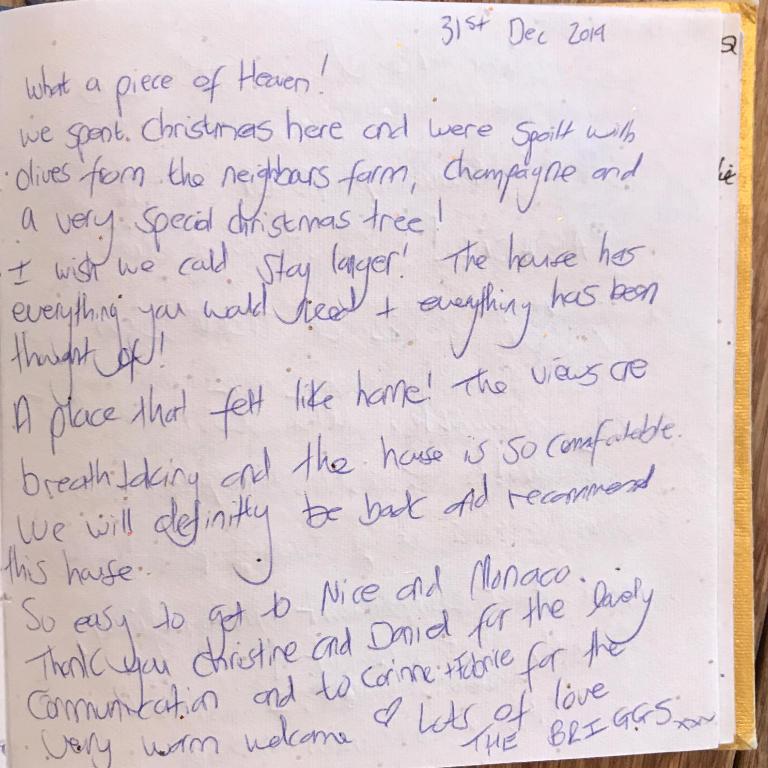 31st Dec 2019
What a piece of Heaven!
we spent. Christmas here and were spoilt with
olives from the neighbours farm, champagne and
a very special christmas tree!
I wish we could stay longer! The house has
everything you would need + everything has been
thought of!
A place that felt like home! The views are
breathtaking and the house is so comfortable.
We will definitly be back and recommend
this house.
So easy to get to Nice and Monaco.
Thank you Christine and Daniel for the lovely
communication and to Corinne + Fabrice for the
very warm welcome ♡ Lots of love
THE BRIGGS xxx